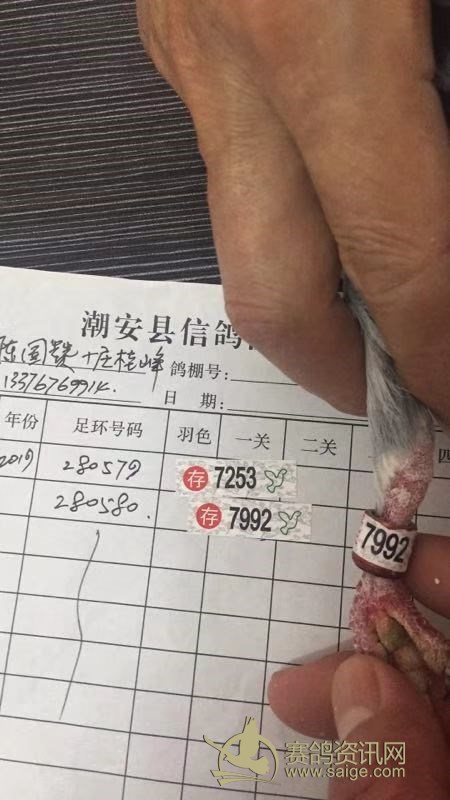 潮安县信鸽
陈国贤+庄桂峰 鸽棚号:
13376769914. 日 期:
年份 足环号码 羽色 一关 二关 四
2019 280579 存 7253
280580. 存 7992
7992
赛鸽资讯网
www.saige.com